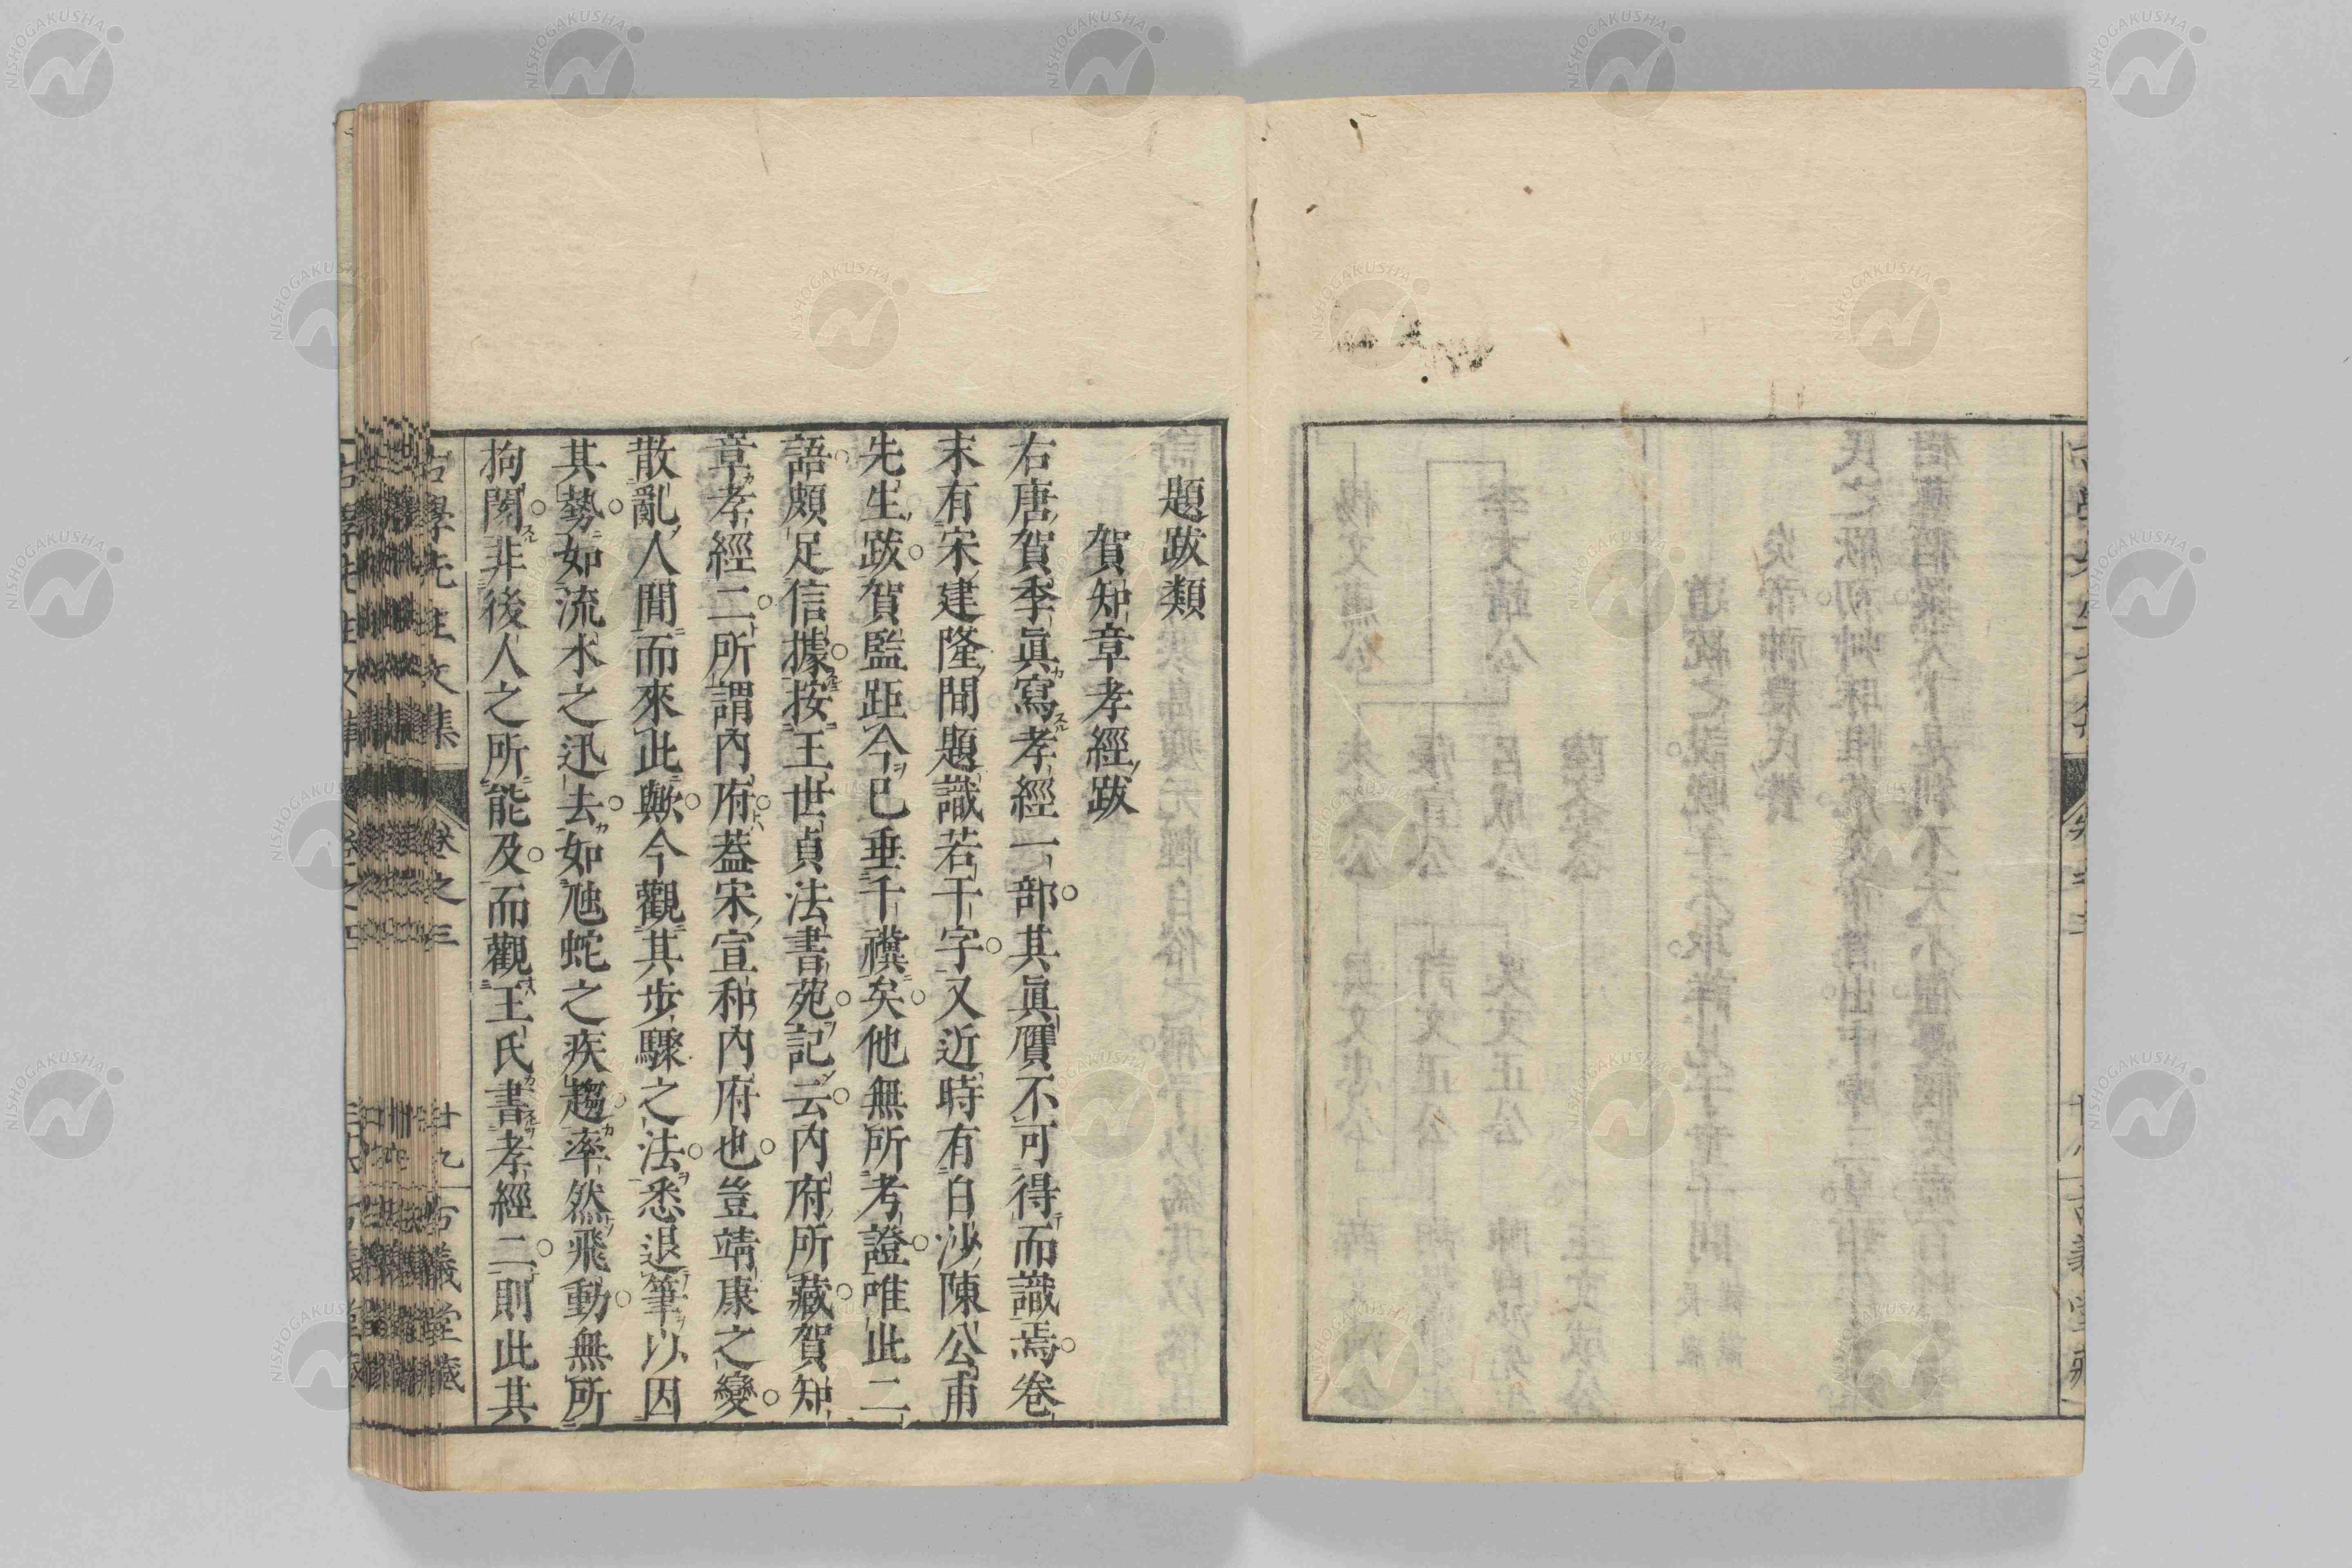 題跋類
賀知章孝經跋
右唐賀季眞寫孝經一部其眞贋不可得而識焉卷
末有宋建隆間題識若干字又近時有白沙陳公甫
先生跋賀監距今已垂千禩矣他無所考證唯此二
語頗足信據按王世貞法書苑記云内府所藏賀知
章孝經二所謂内府葢宋宣和内府也豈靖康之變
散亂人間而來此歟今觀其步驟之法悉退筆以因
其勢如流水之迅去如虺蛇之疾趨率然飛動無所
拘閡非後人之所能及而觀王氏書孝經二則此其
古學先生文集 卷之三 廿九 古義堂藏
NISHOGAKUSHA